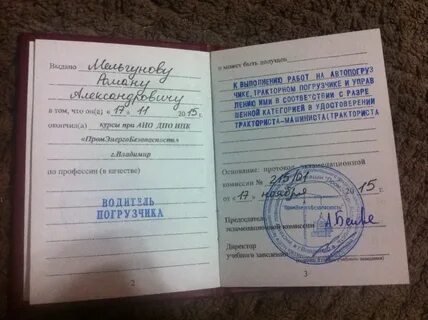 Выдано Мельгунову
Роману
Александровичу
в том, что он(а) «17» 11 2015г.
окончил(а) курсы при АНО ДПО ИПК
«ПромЭнергоБезопасность»
г.Владимир
по профессии (в качестве)
ВОДИТЕЛЬ
ПОГРУЗЧИКА
2
и может быть допущен
К ВЫПОЛНЕНИЮ РАБОТ НА АВТОПОГРУЗ
ЧИКЕ, ТРАКТОРНОМ ПОГРУЗЧИКЕ И УПРАВ
ЛЕНИЮ ИМИ В СООТВЕТСТВИИ С РАЗРЕ
ШЕННОЙ КАТЕГОРИЕЙ В УДОСТОВЕРЕНИИ
ТРАКТОРИСТА-МАШИНИСТА(ТРАКТОРИСТА
Основание: протокол экзаменационной
комиссии № 215/01
от «17» ноября 2015г.
Председатель
экзаменационной комиссии
ПромЭнергоБезопасность
Директор
учебного заведения
3